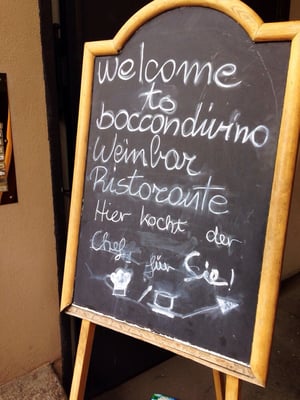 welcome
to
boccondivino
Weinbar
Ristorante
Hier kocht der
Chef für Sie!